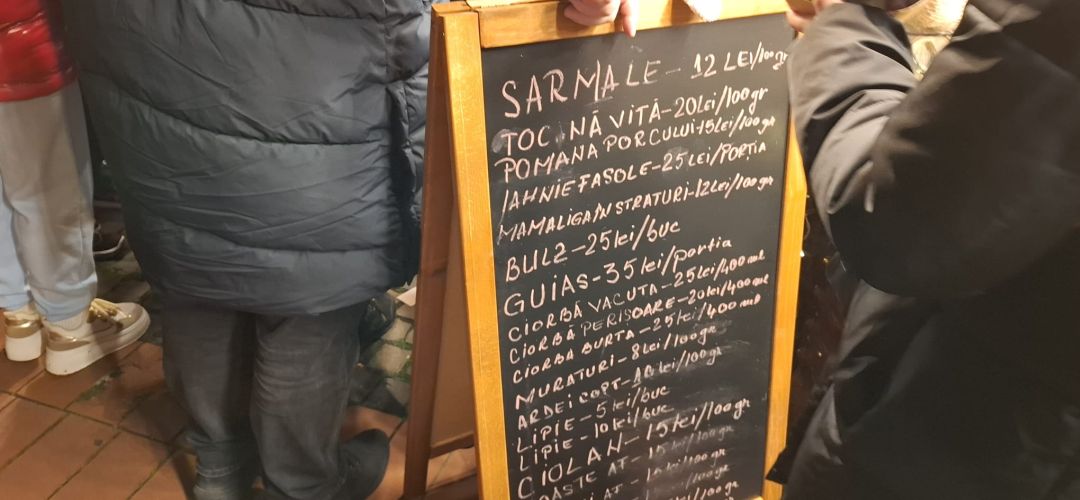 SARMALE - 12 LEI/100gr
TOCĂNĂ VITĂ - 20Lei/100gr
POMANA PORCULUI 15Lei/100gr
IAHNIE FASOLE - 25 LEI/PORȚIA
MAMALIGA IN STRATURI - 12Lei/100gr
BULZ - 25 lei/buc
GUIAS - 35 lei/portia
CIORBĂ VACUTA - 25 lei/400 ml
CIORBĂ PERISOARE - 20 lei/400 ml
CIORBĂ BURTA - 25 lei/400 ml
MURATURI - 8 Lei/100gr
ARDEI COPT - lei/100gr
LIPIE - 5 lei/buc
LIPIE - 10 lei/buc
CIOLAN - 15 lei/100gr
AT - lei/100gr
AT - lei/100gr
/100gr